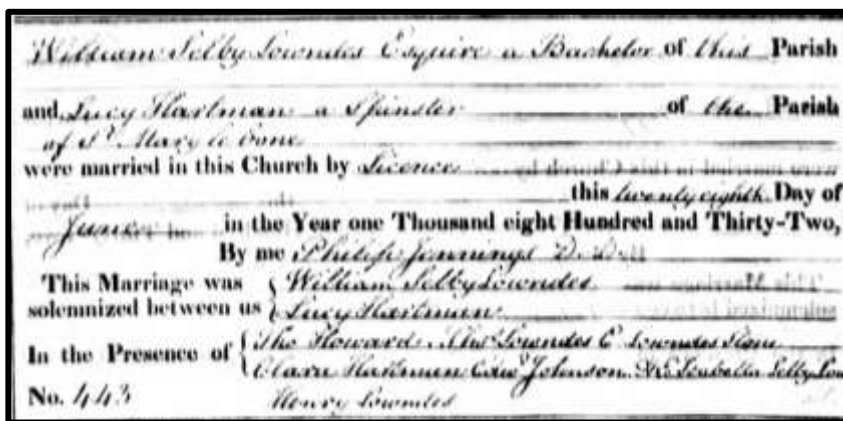 William Selby Lowndes Esquire a Bachelor of this Parish
and Lucy Hartman a Spinster of the Parish
of St Mary le bone
were married in this Church by Licence
this twenty eighth Day of
June in the Year one Thousand eight Hundred and Thirty-Two,
By me Philip Jennings D.D.
This Marriage was { William Selby Lowndes
solemnized between us { Lucy Hartman
In the Presence of { Tho Howard Lowndes E Lowndes Stone
Clara Hartman Edwd Johnson Isabella Selby Low
No. 443 Henry Lowndes